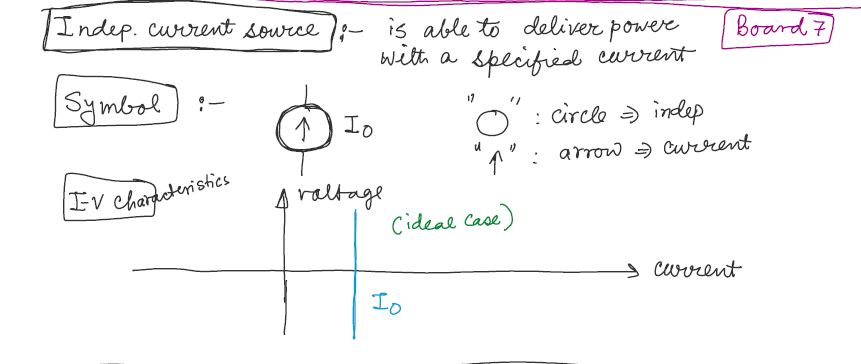 Indep. current source :- is able to deliver power
with a specified current
Board 7
Symbol :-
↑ I0
"○" : circle ⇒ indep
"↑" : arrow ⇒ current
I-V characteristics
voltage
(ideal case)
current
I0